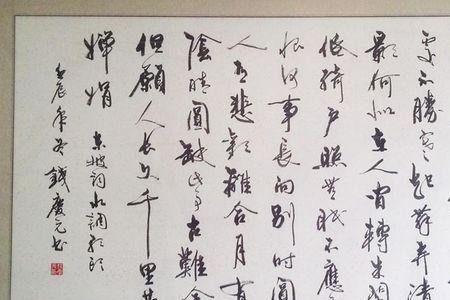 處不勝寒起舞弄清
影何似在人間轉朱閣
低綺戶照無眠不應
恨何事長向別時圓
人有悲歡離合月有
陰晴圓缺此事古難全
但願人長久千里共
嬋娟 東坡詞水調歌頭
壬辰年冬錢慶元書